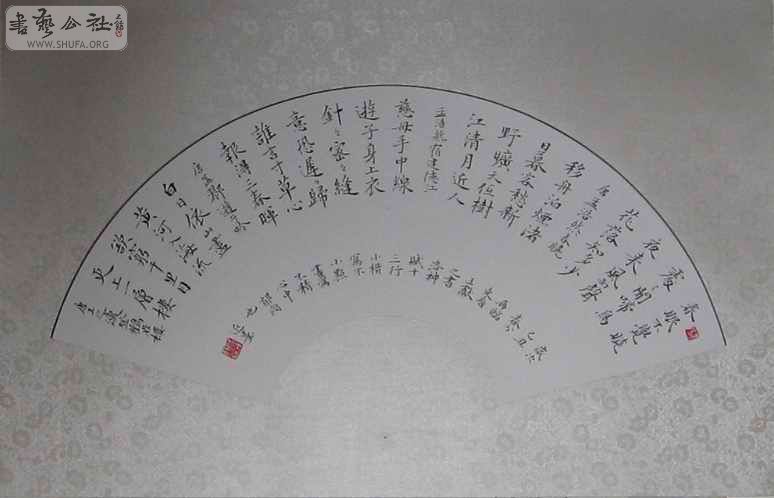 書藝公社
WWW.SHUFA.ORG
春眠不覺曉
處〻聞啼鳥
夜來風雨聲
花落知多少
唐孟浩然春曉
移舟泊煙渚
日暮客愁新
野曠天低樹
江清月近人
孟浩然宿建德江
慈母手中線
遊子身上衣
針〻密〻縫
意恐遲〻歸
誰言寸草心
報得三春暉
唐孟郊遊子吟
白日依山盡
黃河入海流
欲窮千里目
更上一層樓
唐王之渙登鸛雀樓
洛神
賦十
三行
小楷